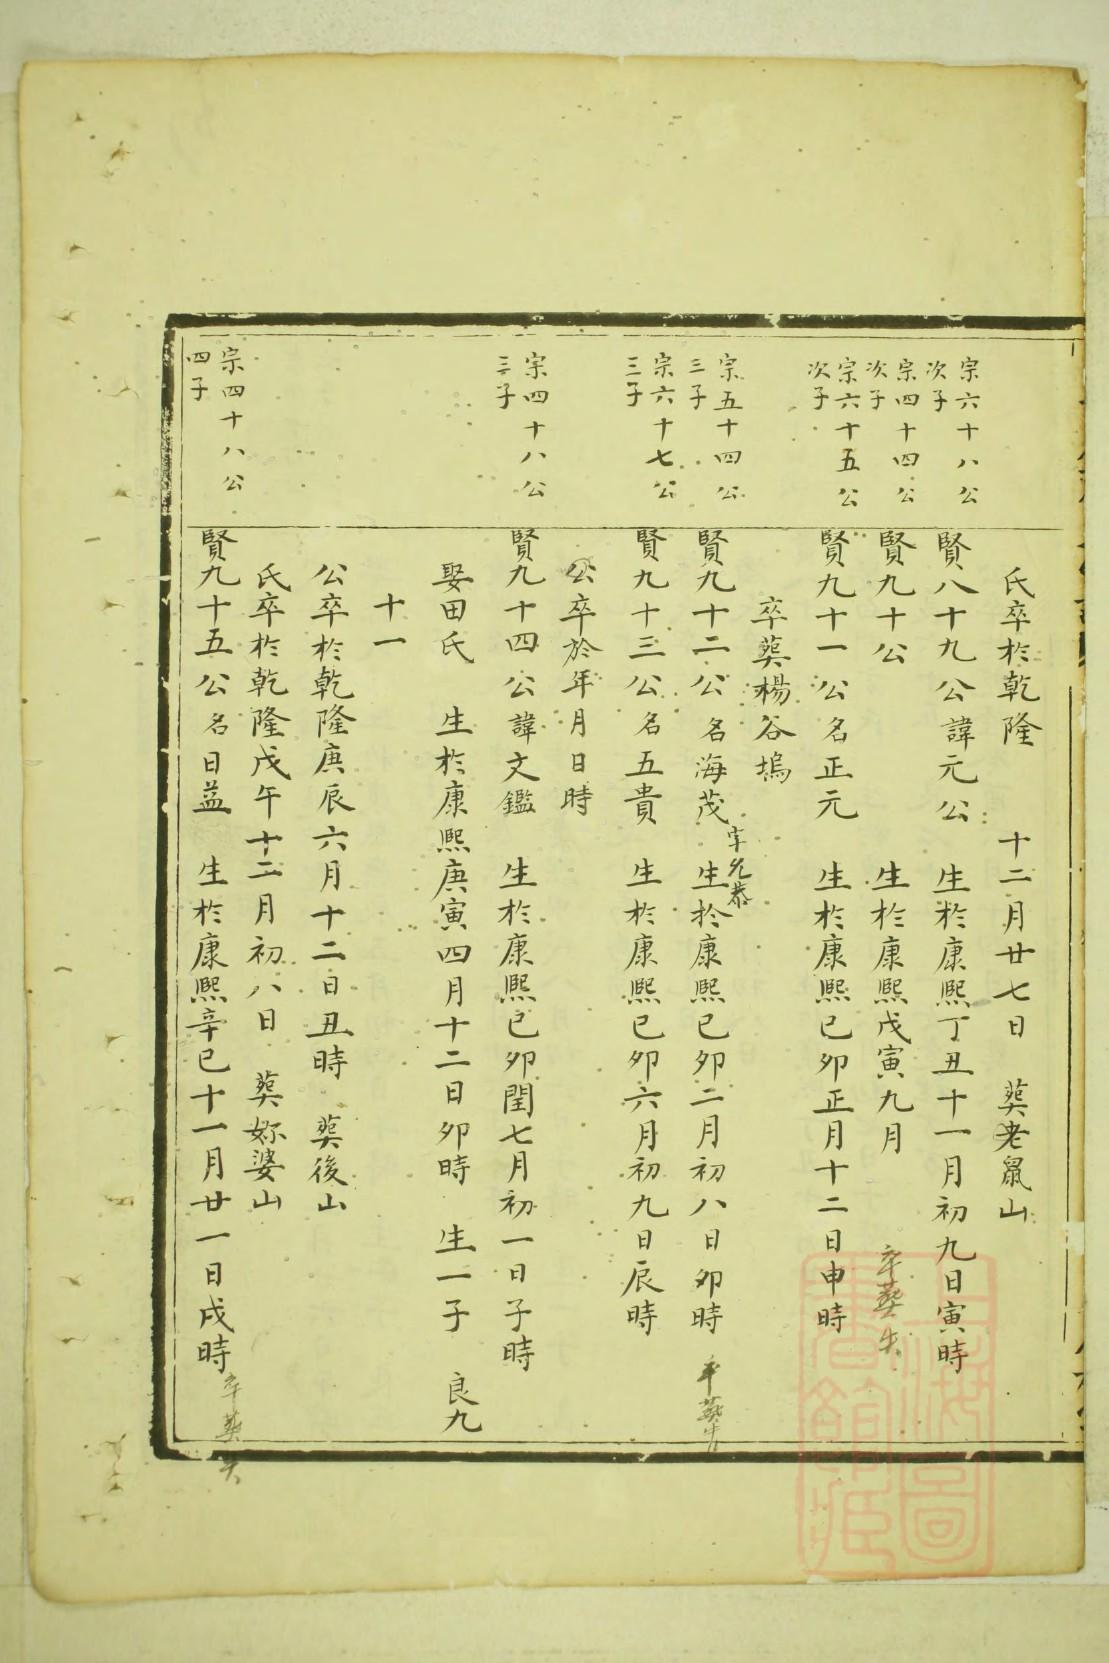 氏卒於乾隆　十二月廿七日　葬老鼠山
宗六十八公
次子
賢八十九公諱元公　生於康熙丁丑十一月初九日寅時
宗四十四公
次子
賢九十公　生於康熙戊寅九月　卒葬失
宗六十五公
次子
賢九十一公名正元　生於康熙已卯正月十二日申時
卒葬楊谷塢
宗五十四公
三子
賢九十二公名海茂　字允恭　生於康熙已卯二月初八日卯時　卒葬失
宗六十七公
三子
賢九十三公名五貴　生於康熙已卯六月初九日辰時
公卒於年月日時
宗四十八公
三子
賢九十四公諱文鑑　生於康熙已卯閏七月初一日子時
娶田氏　生於康熙庚寅四月十二日卯時　生一子　良九
十一
公卒於乾隆庚辰六月十二日丑時　葬後山
氏卒於乾隆戊午十二月初八日　葬婆山
宗四十八公
四子
賢九十五公名日益　生於康熙辛已十一月廿一日戌時　卒葬失
上海圖
書館藏